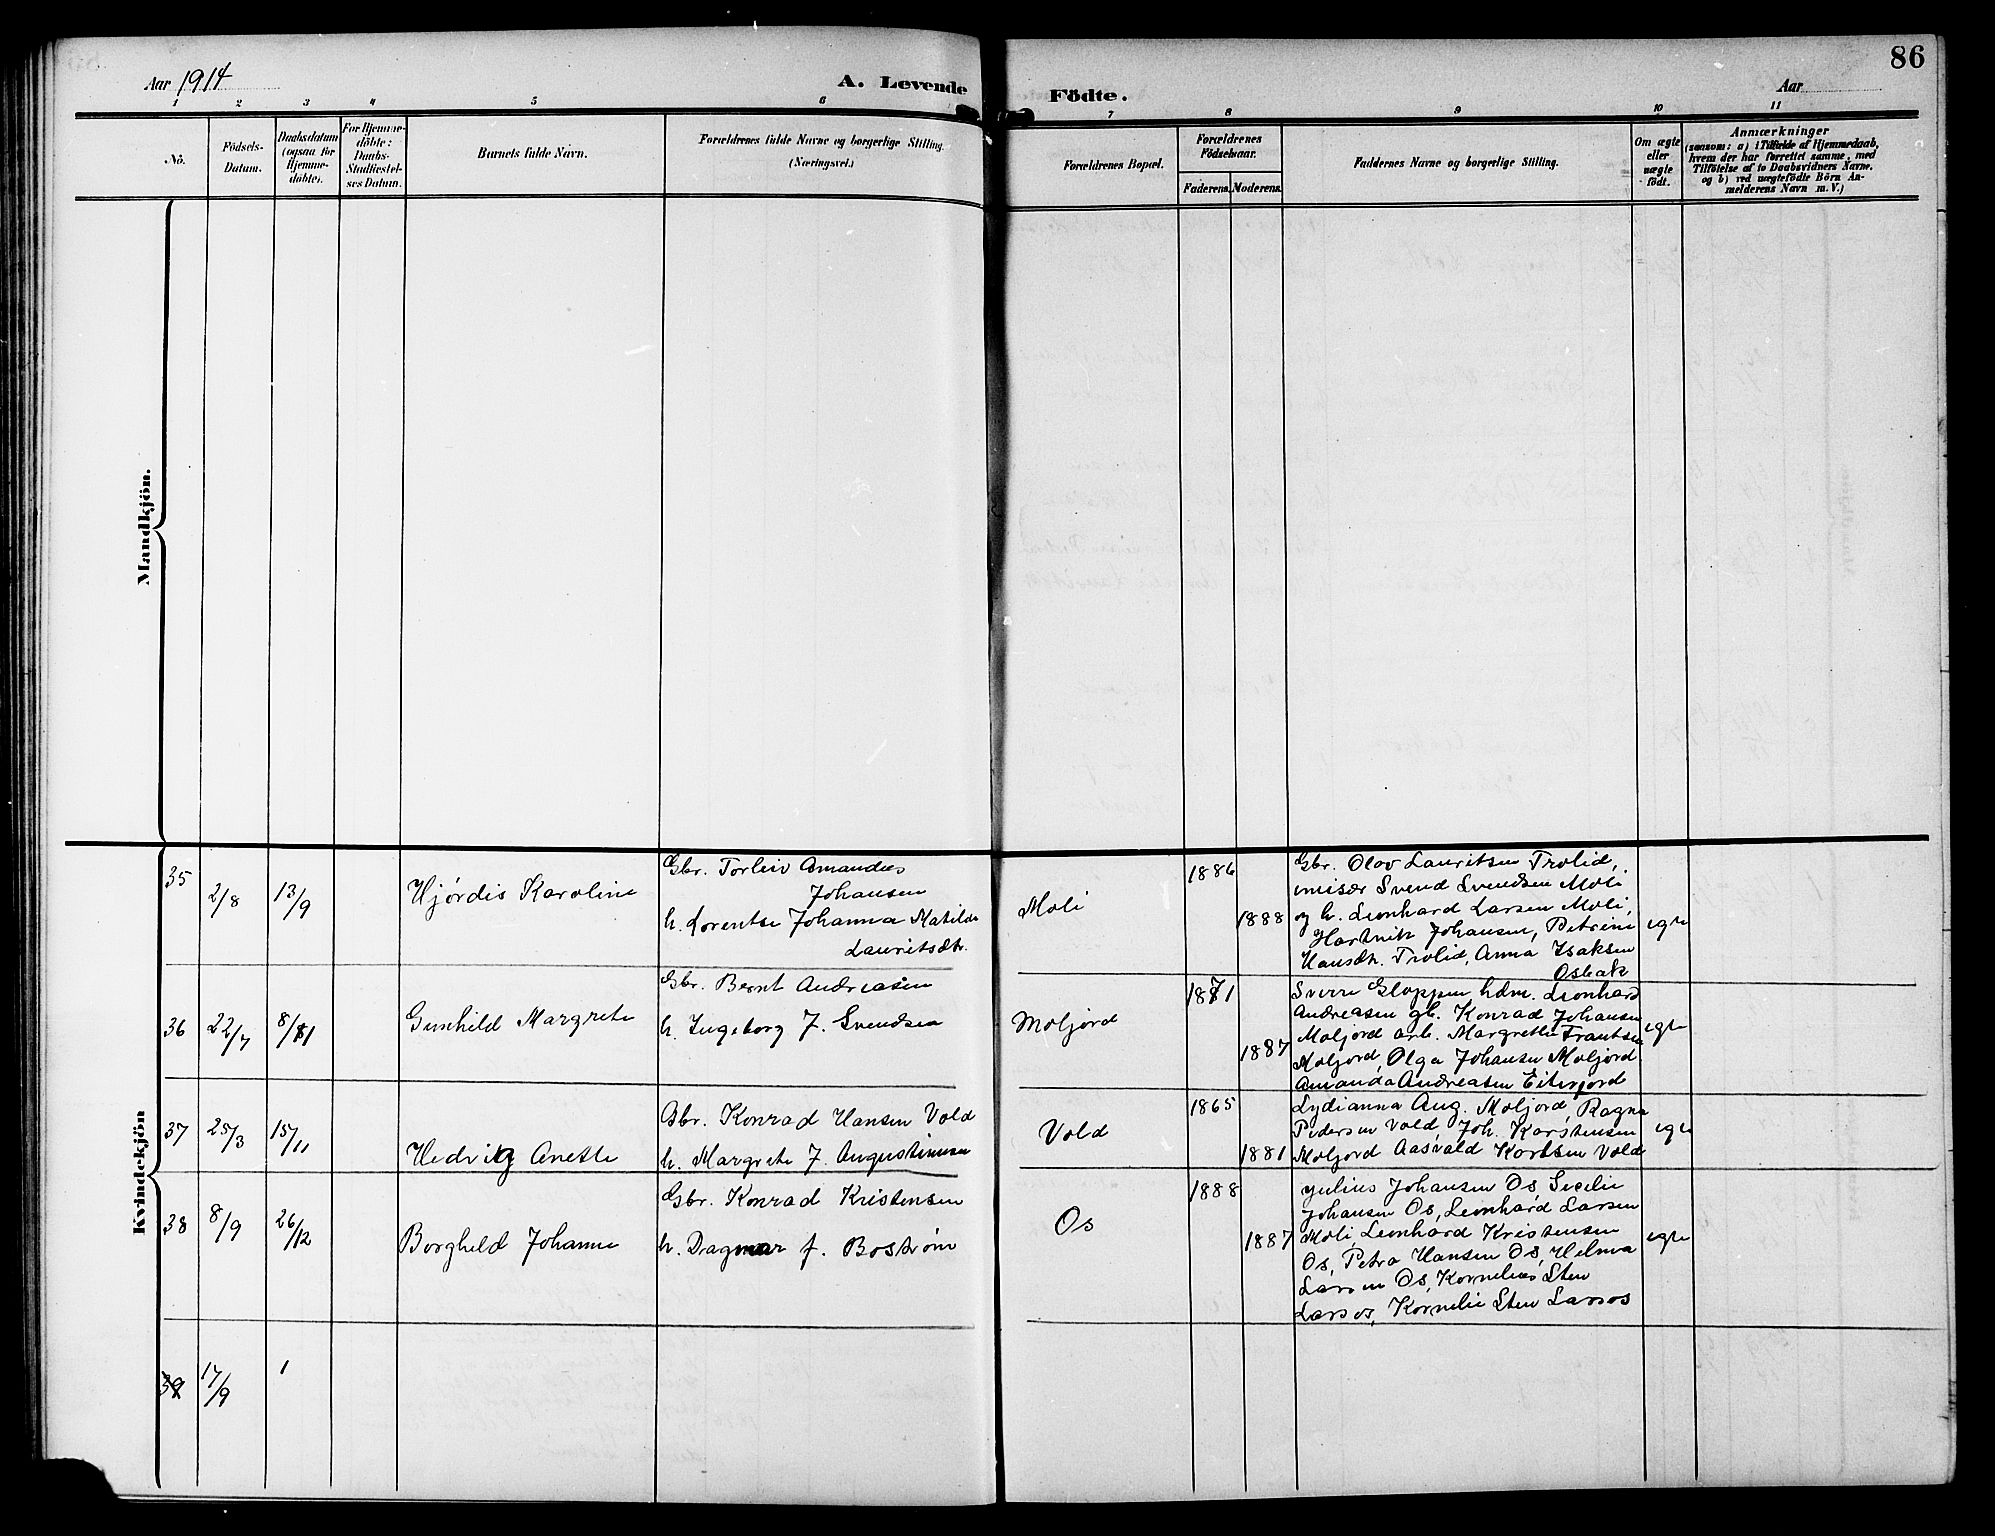 86
Aar 1914
A. Levende
Födte.
Aar
1 2 3 4 5 6 7 8 9 10 11
No.
Födsels-
Datum.
Daabsdatum
(ogsaa for
Hjemme-
döbte).
For Hjemme-
döbte:
Daabs-
Stadfæstel-
ses Datum.
Barnets fulde Navn.
Forældrenes fulde Navne og borgerlige Stilling.
(Næringsvei.)
Forældrenes Bopæl.
Forældrenes
Födselsaar.
Faderens. Moderens.
Faddernes Navne og borgerlige Stilling.
Om ægte
eller
uægte
födt.
Anmærkninger
(saasom: a) i Tilfælde af Hjemmedaab,
hvem der har forrettet samme, med
Tilföielse af to Daabsvidners Navne,
og b) ved uægtefödte Börn An-
melderens Navn m. V.)
Mandkjön.
Kvindekjön
35
2/8
13/9
Hjørdis Karoline
Gbr. Torleiv Amandus
Johansen
h. Lorentse Johanna Matilde
Lauritsdtr.
Moli
1886
1888
Gbr. Olov Lauritsen Trolid,
Svend Svendsen Moli
og h. Leonhard Larsen Moli,
Hartvik Johansen, Petrine
Hansdtr. Trolid, Anna Isaksen
Osbak
egte
36
22/7
8/11
Gunhild Margrete
Gbr. Bernt Andreasen
h. Ingeborg f. Svendsen
Moljord
1871
1887
Sverre Gloppen hdm. Leonhard
Andreasen gb. Konrad Johansen
Moljord arb. Margrethe Frantsen
Moljord, Olga Johansen Moljord
Amanda Andreasen Eiterjord
egte
37
25/3
15/11
Hedvig Anette
Gbr. Konrad Hansen Vold
h. Margrete f. Augustinusen
Vold
1865
1881
Lydianna Aug. Moljord, Ragna
Pedersen Vold, Joh. Karstensen
Moljord Aasvald Kortsen Vold
egte
38
8/9
26/12
Borghild Johanne
Gbr. Konrad Kristensen
h. Dagmar f. Bostrøm
Os
1888
1887
Julius Johansen Os Secilie
Johansen Os, Leonhard Larsen
Moli, Leonhard Kristensen
Os, Petra Hansen Os, Helma
Larsen Os, Kornelius Sten
Larsos, Kornelie Sten Larsos
egte
39
17/9
1